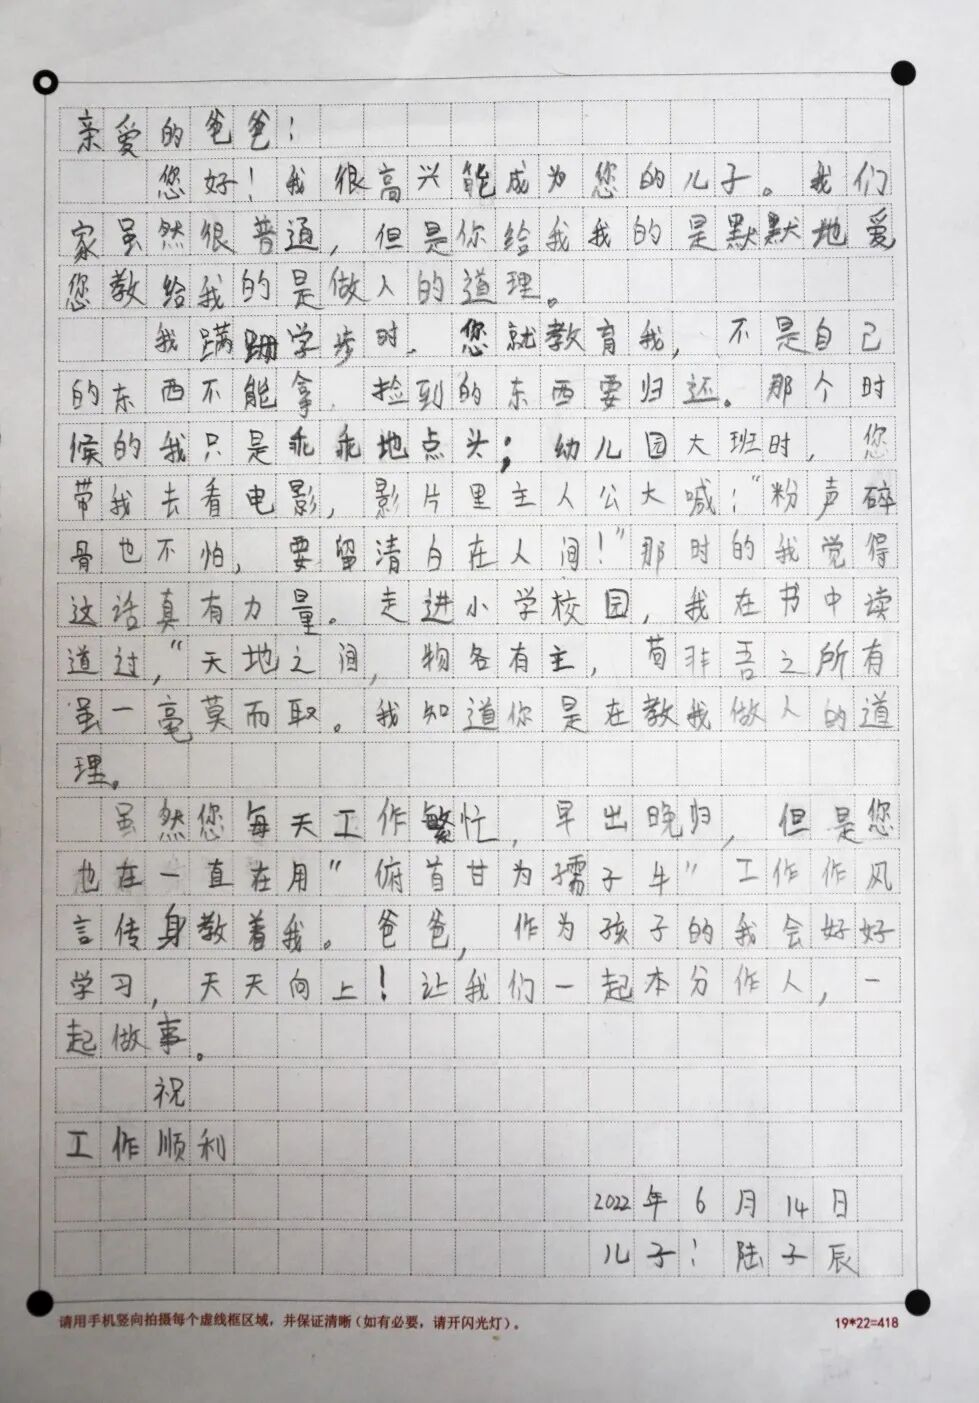 亲爱的爸爸！
您好！我很高兴能成为您的儿子。我们
家虽然很普通，但是你给我我的是默默地爱
您教给我的是做人的道理。
我蹒跚学步时，您就教育我，不是自己
的东西不能拿，捡到的东西要归还。那个时
候的我只是乖乖地点头；幼儿园大班时，您
带我去看电影，影片里主人公大喊！“粉声碎
骨也不怕，要留清白在人间！”那时的我觉得
这话真有力量。走进小学校园，我在书中读
道过，“天地之间，物各有主，苟非吾之所有
虽一毫莫而取。我知道你是在教我做人的道
理。
虽然您每天工作繁忙，早出晚归，但是您
也在一直在用”俯首甘为孺子牛”工作作风
言传身教着我。爸爸，作为孩子的我会好好
学习，天天向上！让我们一起本分作人，一
起做事。
祝
工作顺利
2022年6月14日
儿子！陆子辰
请用手机竖向拍摄每个虚线框区域，并保证清晰（如有必要，请开闪光灯）。
19*22=418